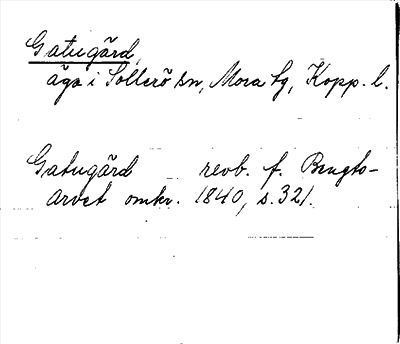 Gatugård,
äga i Sollerö sn, Mora tg, Kopp. l.
Gatugård reob. f. Bengts-
arvet omkr. 1840, s. 321.